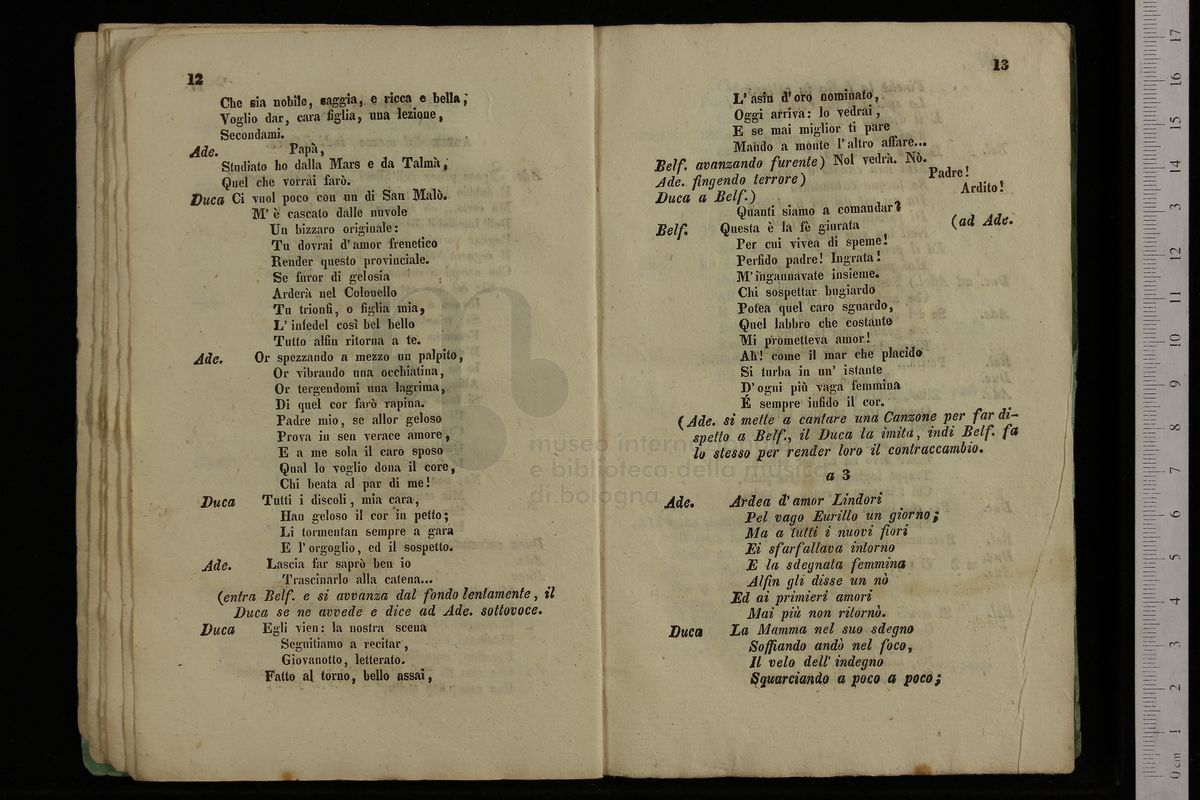 12
Che sia nobile, saggia, e ricca e bella;
Voglio dar, cara figlia, una lezione,
Secondami.
Ade. Papà,
Studiato ho dalla Mars e da Talmà,
Quel che vorrai farò.
Duca Ci vuol poco con un di San Malò.
M' è cascato dalle nuvole
Un bizzaro originale:
Tu dovrai d' amor frenetico
Render questo provinciale.
Se furor di gelosia
Arderà nel Colonello
Tu trionfi, o figlia mia,
L' infedel così bel bello
Tutto alfin ritorna a te.
Ade. Or spezzando a mezzo un palpito,
Or vibrando una occhiatina,
Or tergendomi una lagrima,
Di quel cor farò rapina.
Padre mio, se allor geloso
Prova in sen verace amore,
E a me sola il caro sposo
Qual lo voglio dona il core,
Chi beata al par di me!
Duca Tutti i discoli, mia cara,
Han geloso il cor in petto;
Li tormentan sempre a gara
E l' orgoglio, ed il sospetto.
Ade. Lascia far saprò ben io
Trascinarlo alla catena...
(entra Belf. e si avvanza dal fondo lentamente, il
Duca se ne avvede e dice ad Ade. sottovoce.
Duca Egli vien: la nostra scena
Seguitiamo a recitar,
Giovanotto, letterato.
Fatto al torno, bello assai,
13
L' asin d' oro nominato,
Oggi arriva: lo vedrai,
E se mai miglior ti pare
Mando a monte l' altro affare...
Belf. avanzando furente) Nol vedrà. Nò.
Ade. fingendo terrore) Padre!
Duca a Belf.) Ardito!
Quanti siamo a comandar?
Belf. Questa è la fè giurata (ad Ade.
Per cui vivea di speme!
Perfido padre! Ingrata!
M' ingannavate insieme.
Chi sospettar bugiardo
Potea quel caro sguardo,
Quel labbro che costante
Mi prometteva amor!
Ah! come il mar che placido
Si turba in un' istante
D' ogni più vaga femmina
É sempre infido il cor.
(Ade. si mette a cantare una Canzone per far di-
spetto a Belf., il Duca la imita, indi Belf. fa
lo stesso per render loro il contraccambio.
a 3
Ade. Ardea d' amor Lindori
Pel vago Eurillo un giorno;
Ma a tutti i nuovi fiori
Ei sfarfallava intorno
E la sdegnata femmina
Alfin gli disse un nò
Ed ai primieri amori
Mai più non ritornò.
Duca La Mamma nel suo sdegno
Soffiando andò nel foco,
Il velo dell' indegno
Squarciando a poco a poco;
museo inter
e biblioteca della musica
di bologna
0 cm 1 2 3 4 5 6 7 8 9 10 11 12 13 14 15 16 17